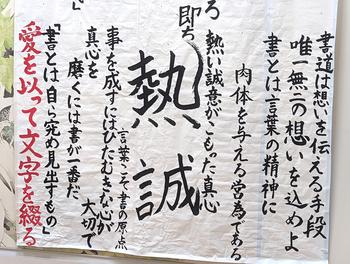 書道は想いを伝える手段
唯一無二の想いを込めよ
書とは言葉の精神に
肉体を与える営為である
ろ
即ち
熱い誠意がこもった真心
熱誠
言葉こそ書の原点
事を成すにはひたむきな心が大切で
真心を
磨くには書が一番だ
「書とは自ら死め見出すもの」
愛を以って文字を綴る